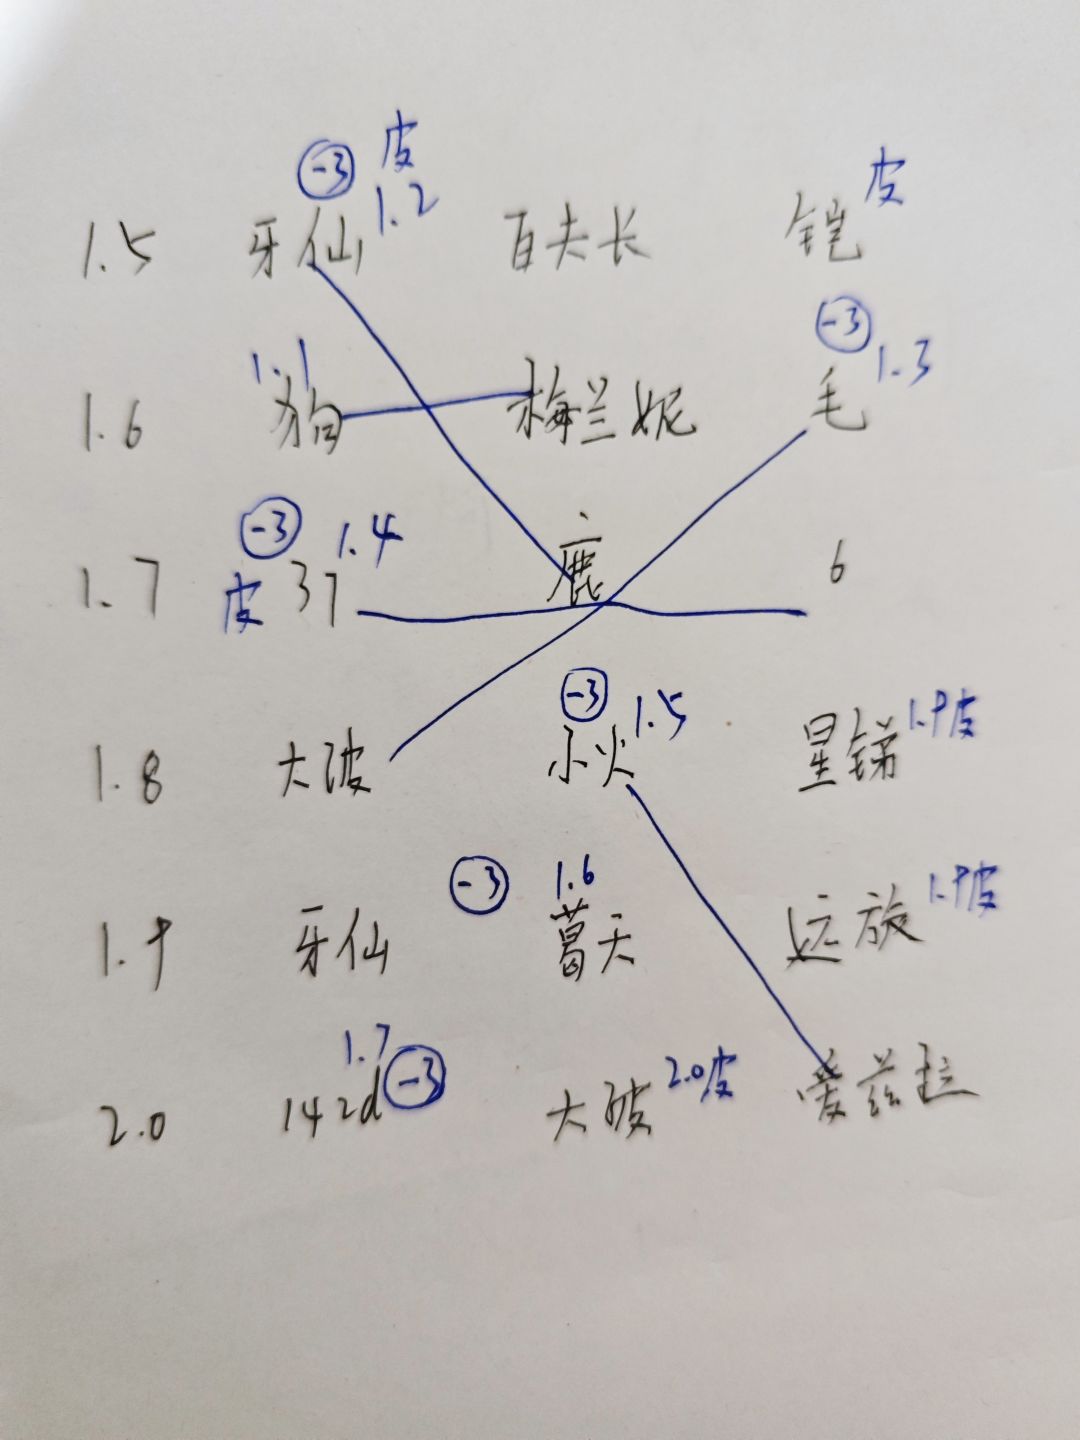 -3 皮
1.5 牙仙 1.2 百夫长 铠 皮
-3
1.1 1.3
1.6 狗 梅兰妮 毛
-3 1.4
1.7 皮 37 鹿 6
-3 1.5 1.9皮
1.8 大波 小火 星锑
-3 1.6 1.9皮
1.9 牙仙 葛天 远旅
1.7 -3 2.0皮
2.0 142d 大陂 爱兹拉